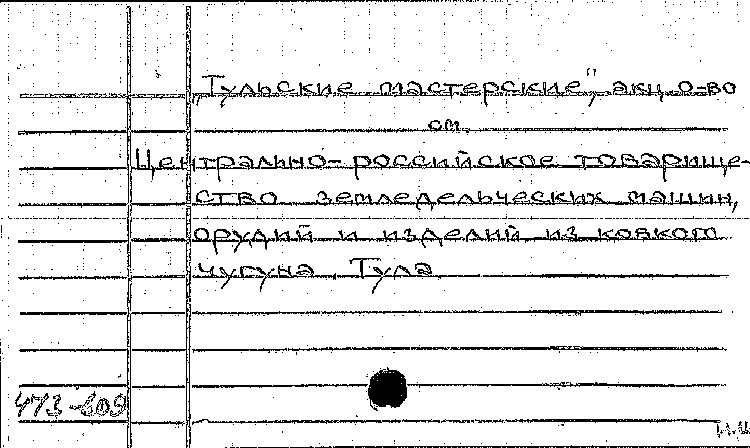 „Тульские мастерские", акц. о-во
см.
Центрально-российское товарище-
ство земледельческих машин,
орудий и изделий из ковкого
чугуна. Тула
473-609